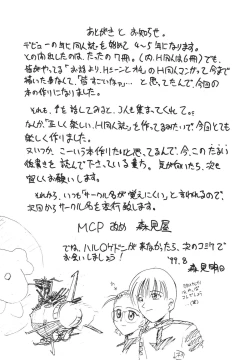 あとがき と お知らせ。
デビューの年に同人誌を始めて 4〜5年になります。
その間出したのは、たったの7冊。(内、H同人は6冊)でも、
皆がやってる「お話より、Hシーンとオチ」のH同人マンガって今まで
描いた事なくて「皆すごいなァ…」と思ってたんで、今回の
本の作りになりました。
それも、声を読してみると、3人も集まってくれて。
なんか「正しく楽しい、H同人誌」を作ってるみたいで、今回とても
楽しく作りました。
又いつか、こーいう本作りたいと思ってるんで、今このあたり
後書きを読んで下さっている貴方。気が向いたら、次も
宜しくお願いします。
それから、いつも「サークル名が覚えにくい」と言われるので、
次回からサークル名を変えて致します。
MCP あらため 森見屋
では、ハルマゲドンが来なかったら、次のコミケで
お会いしましょう!
'99.8
森見明日